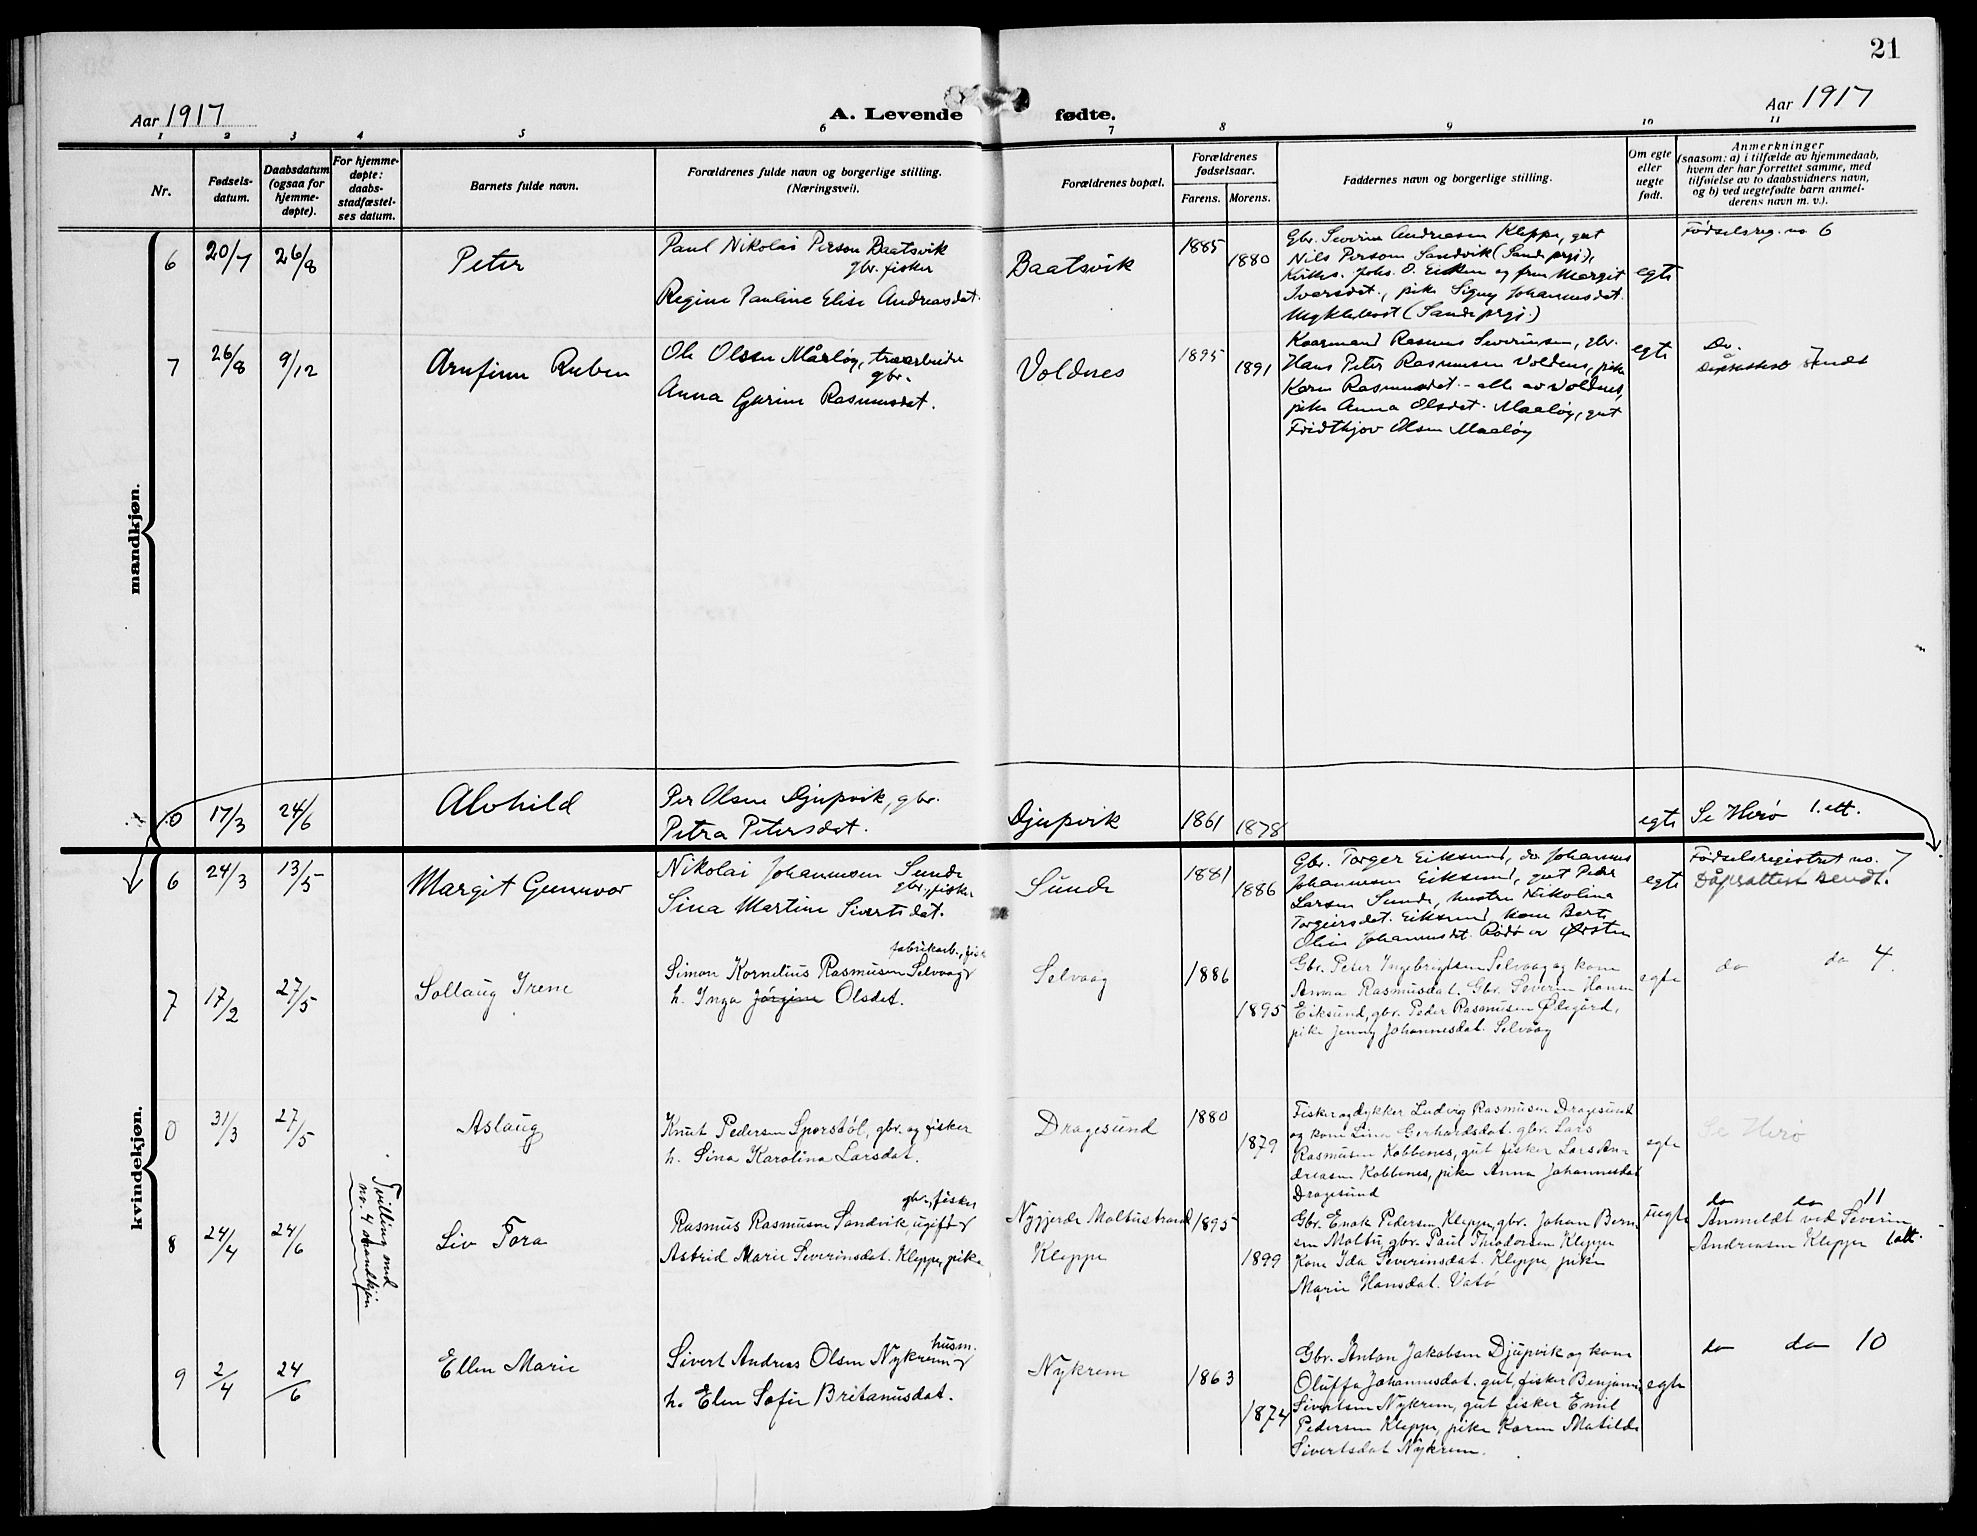 21
Aar 1917
A. Levende fødte.
Aar 1917
1 2 3 4 5 6 7 8 9 10 11
Nr.
Fødsels-
datum.
Daabsdatum
(ogsaa for
hjemme-
døpte).
For hjemme-
døpte:
daabs-
stadfæstel-
ses datum.
Barnets fulde navn.
Forældrenes fulde navn og borgerlige stilling.
(Næringsvei).
Forældrenes bopæl.
Forældrenes
fødselsaar.
Farens. Morens.
Faddernes navn og borgerlige stilling.
Om egte
eller
uegte
født.
Anmerkninger
(saasom: a) i tilfælde av hjemmedaab,
hvem der har forrettet samme, med
tilføielse av to daabsvidners navn,
og b) ved uegtefødte barn anmel-
derens navn m. v.).
mandkjøn.
6
20/7
26/8
Peter
Paul Nikolai Person Baatsvik
gbr. fisker
Regine Pauline Elise Andreasdat.
Baatsvik
1885
1880
Gbr. Severin Andreasen Kleppe, gut
Nils Person Sandvik (Sande prgj),
Kirkes. Johs. O. Eiksun og fru Margit
Iversdat., pike Signy Johannesdat.
Myklebost (Sande prgj.)
egte
Fødselsreg. no 6
7
26/8
9/12
Arnfinn Ruben
Ole Olsen Måløy, træarbeider
gbr.
Anna Gurine Rasmusdat.
Voldnes
1895
1891
Kaarmand Rasmus Severinsen, gbr.
Hans Peter Rasmussen Voldnes, pike
Karen Rasmusdat. - alle av Voldnes,
pike Anna Olsdat. Maaløy, gut
Fridthjov Olsen Maaløy
egte
Do. 7
Dåpsattest sendt
0
17/3
24/6
Alvhild
Per Olsen Djupvik, gbr.
Petra Petersdat.
Djupvik
1861
1878
egte
Se Herø 1. att.
kvindekjøn.
6
24/3
13/5
Margit Gunnvor
Nikolai Johannesen Sunde
gbr., fisker
Sina Martine Sivertsdat.
Sunde
1881
1886
Gbr. Torger Eiksund, do Johannes
Johannesen Eiksund, gut Peder
Larsen Sunde, hustru Nikolina
Torgeirsdat. Eiksund, kone Berte
Oline Johannesdat. Rødø av Ørsten
egte
Fødselsregistret no. 7
Dåpsattest sendt.
7
17/2
27/5
Sollaug Irene
fabrikarb., fisk
Simon Kornelius Rasmusen Selvaag
h. Inga Jørgine Olsdat.
Selvaag
1886
1895
Gbr. Peter Ingebrigtsen Selvaag og kone
Anna Rasmusdat. Gbr. Severin Hansen
Eiksund, gbr. Peder Rasmusen Ødegård,
pike Jenny Johannesdat. Selvåg
egte
do do 4
0
31/3
27/5
Aslaug
Knut Pedersen Sporstøl, gbr. og fisker
h. Sina Karolina Larsdat.
Dragesund
1880
1879
Fisker og dykker Ludvig Rasmusen Dragesund
og kone Lina Gerhardsdat. gbr. Lars
Rasmusen Kobbenes, gut fisker Lars An-
dreasen Kobbenes, pike Anna Johannesdat
Dragesund
egte
Se Herø
8
24/4
24/6
Tvilling med
no. 4 mandkjøn
Liv Tora
gbr., fisker
Rasmus Rasmusen Sandvik, ugift
Astrid Marie Severinsdat. Kleppe, pike
Nygjerde Moltustrand
Kleppe
1895
1899
Gbr. Enok Pedersen Kleppe, gbr. Johan Bern-
sen Moltu, gbr. Paul Thodorsen Kleppe
Kone Ida Severinsdat. Kleppe, pike
Marie Hansdat. Vatø
uegte
do do 11
Anmeldt ved Severin
Andreasen Kleppe 1 att.
9
2/4
24/6
Ellen Marie
husm.
Sivert Andreas Olsen Nykrem
h. Elen Sofie Britanusdat.
Nykrem
1863
1874
Gbr. Anton Jakobsen Djupvik og kone
Oluffa Johannesdat. gut, fisker Benjamin
Sivertsen Nykrem, gut fisker Emil
Pedersen Kleppe, pike Karen Matilde
Sivertsdat Nykrem.
egte
do do 10